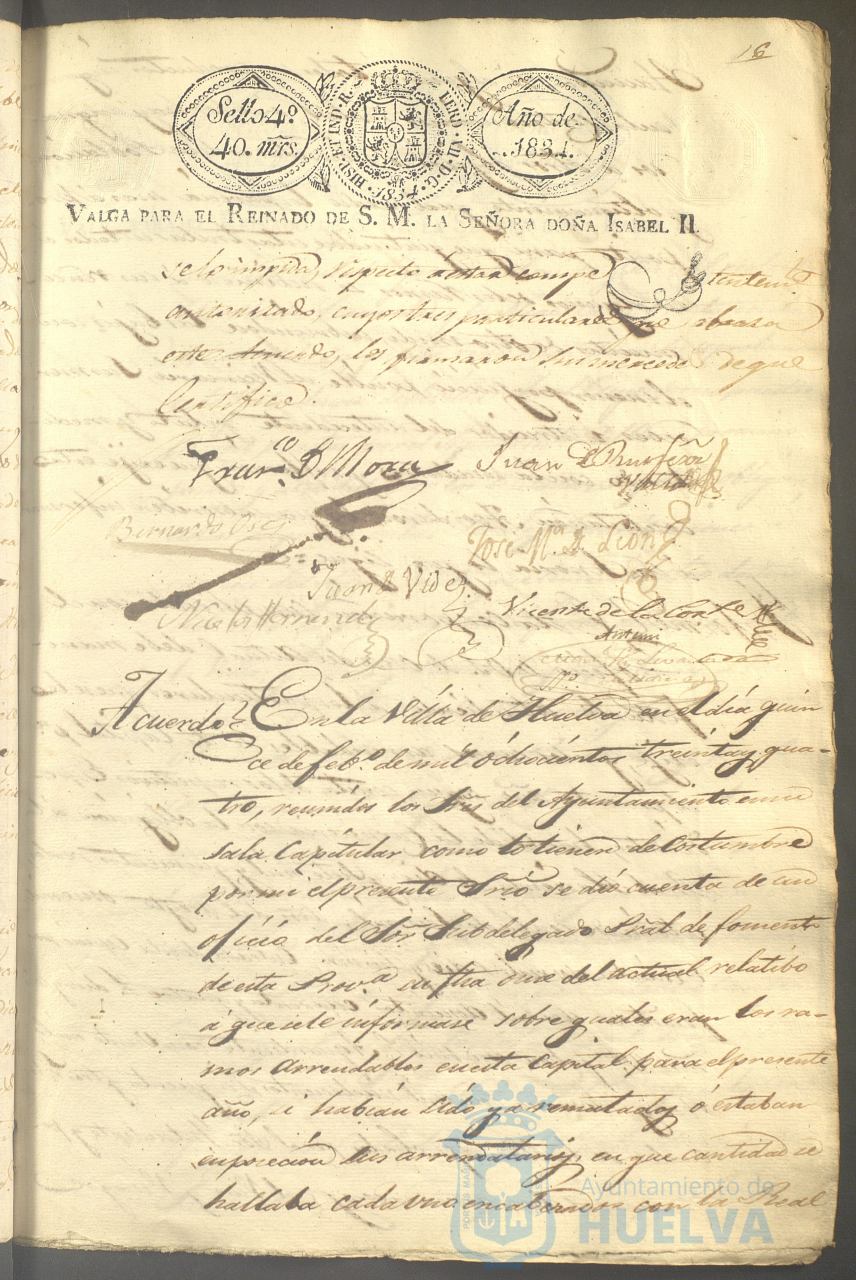 16
Sello 4º
40. mrs.
HISP. ET IND. R. FERD. VII. D. G. 1834.
Año de
1834.
VALGA PARA EL REINADO DE S. M. LA SEÑORA DOÑA ISABEL II.
se lo impida, respecto a estar compe tentemte
autorizado, cuyos tres particulares que abraza
este Acuerdo, los firmaron sus mercedes de que
Certifico.
Franco D Mora Juan
Bernardo
José Mª de León
Juan D Vides
Vicente de la Corte
Nicolas Hernandz
Antemi
Acuerdo En la Villa de Huelva en el día quin
ce de febo. de mil ochocientos treinta y qua-
tro, reunidos los Sres del Ayuntamiento en su
sala Capitular como lo tienen de costumbre
por mi el presente Srio se dió cuenta de un
oficio del Sor Subdelegado Pral de fomento
de esta Prova su fha once del actual relatibo
á que se le informase sobre quales eran los ra-
mos arrendables en esta Capital para el presente
año, si habian sido ya rematados ó estaban
en posecion sus arrendatarios, en que cantidad se
hallaba cada uno encabezados con la Real
Ayuntamiento de
HUELVA